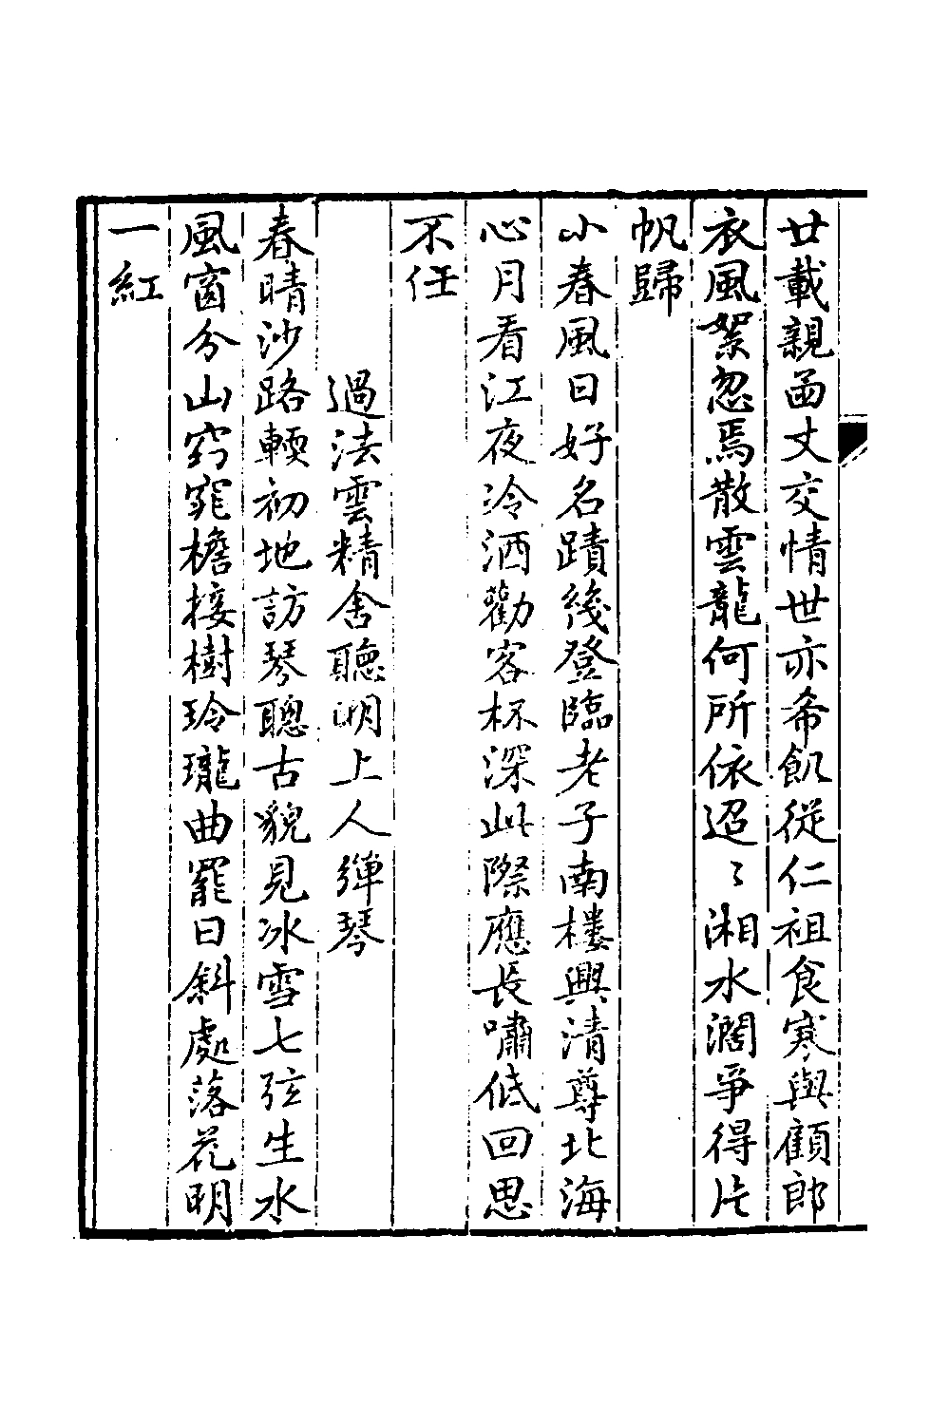 廿載親函丈交情世亦希飢從仁祖食寒與顧郎
衣風絮忽焉散雲龍何所依迢〻湘水濶爭得片
帆歸
小春風日好名蹟幾登臨老子南樓興清尊北海
心月看江夜冷酒勸客杯深此際應長嘯低回思
不任
過法雲精舍聽湖上人彈琴
春晴沙路輭初地訪琴聰古貌見冰雪七弦生水
風窗分山窈窕檐接樹玲瓏曲罷日斜處落花明
一紅